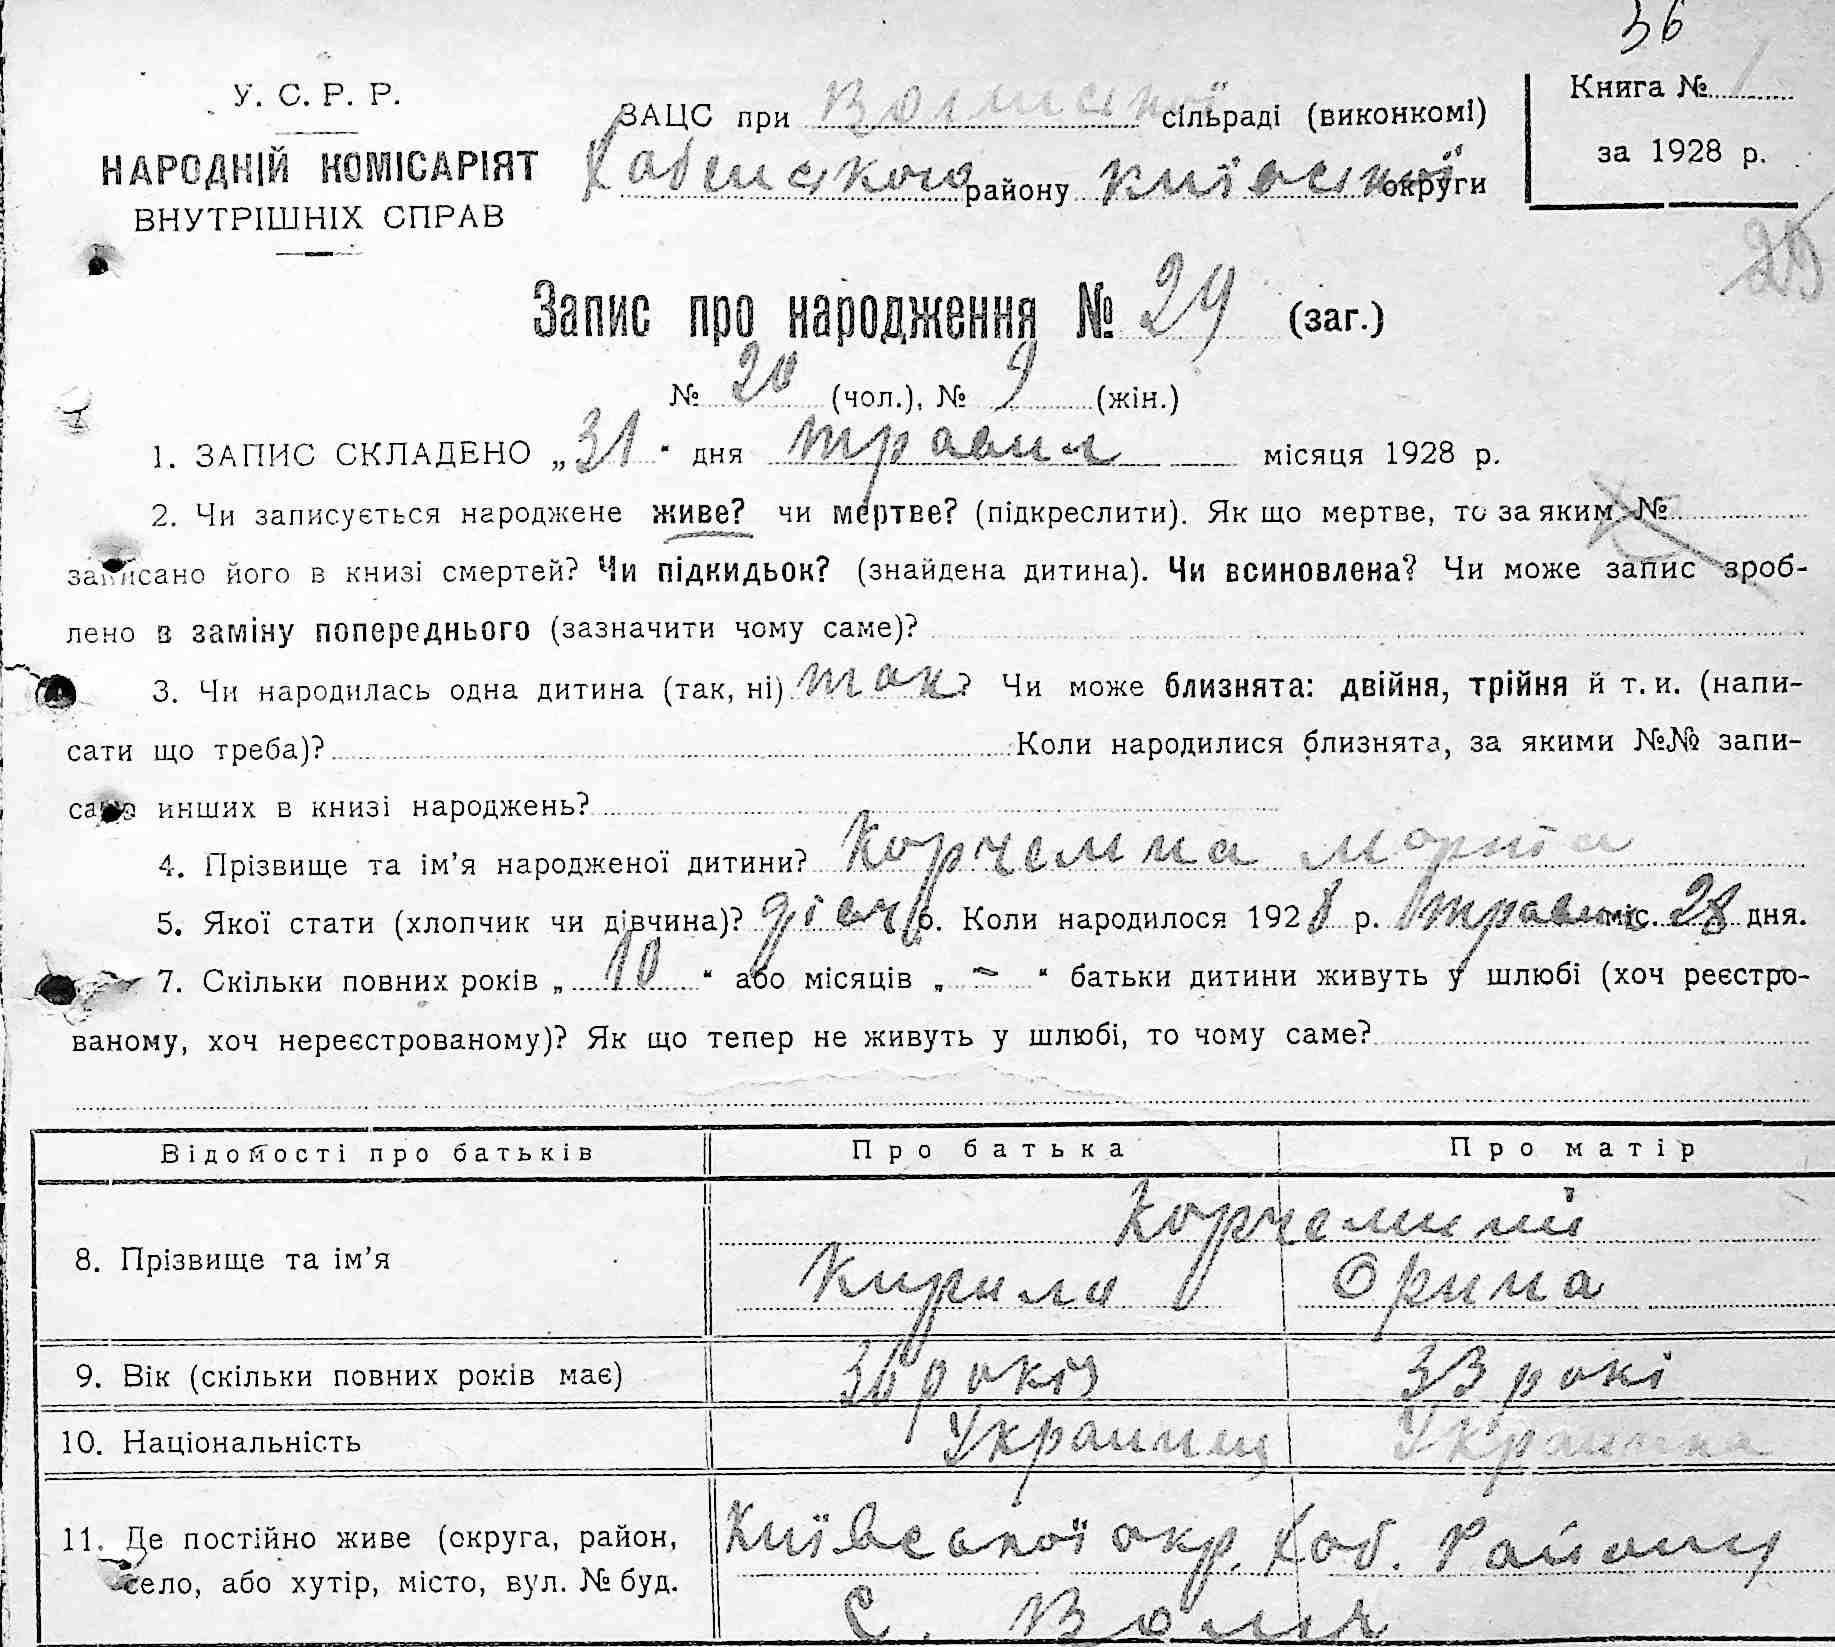 36
У. С. Р. Р.
НАРОДНІЙ КОМІСАРІЯТ
ВНУТРІШНІХ СПРАВ
ЗАЦС при Волянської сільраді (виконкомі)
Хабенського району Київської округи
Книга № 1
за 1928 р.
25
Запис про народження № 29 (заг.)
№ 20 (чол.), № 9 (жін.)
1. ЗАПИС СКЛАДЕНО „31“ дня травня місяця 1928 р.
2. Чи записується народжене живе? чи мертве? (підкреслити). Як що мертве, то за яким №
записано його в книзі смертей? Чи підкидьок? (знайдена дитина). Чи всиновлена? Чи може запис зроб-
лено в заміну попереднього (зазначити чому саме)?
3. Чи народилась одна дитина (так, ні) так? Чи може близнята: двійня, трійня й т. и. (напи-
сати що треба)? Коли народилися близнята, за якими №№ запи-
сано инших в книзі народжень?
4. Прізвище та ім’я народженої дитини? Корчемна Марія
5. Якої стати (хлопчик чи дівчина)? дівч 6. Коли народилося 1928 р. травня міс. 28 дня.
7. Скільки повних років „10“ або місяців „–“ батьки дитини живуть у шлюбі (хоч реєстро-
ваному, хоч нереєстрованому)? Як що тепер не живуть у шлюбі, то чому саме?
Відомості про батьків Про батька Про матір
Корчемний
8. Прізвище та ім’я Кирило Орина
9. Вік (скільки повних років має) 36 років 33 рокі
10. Національність Украинец Украинка
11. Де постійно живе (округа, район, Київської окр. Хаб. Району
село, або хутір, місто, вул. № буд. с. Воля